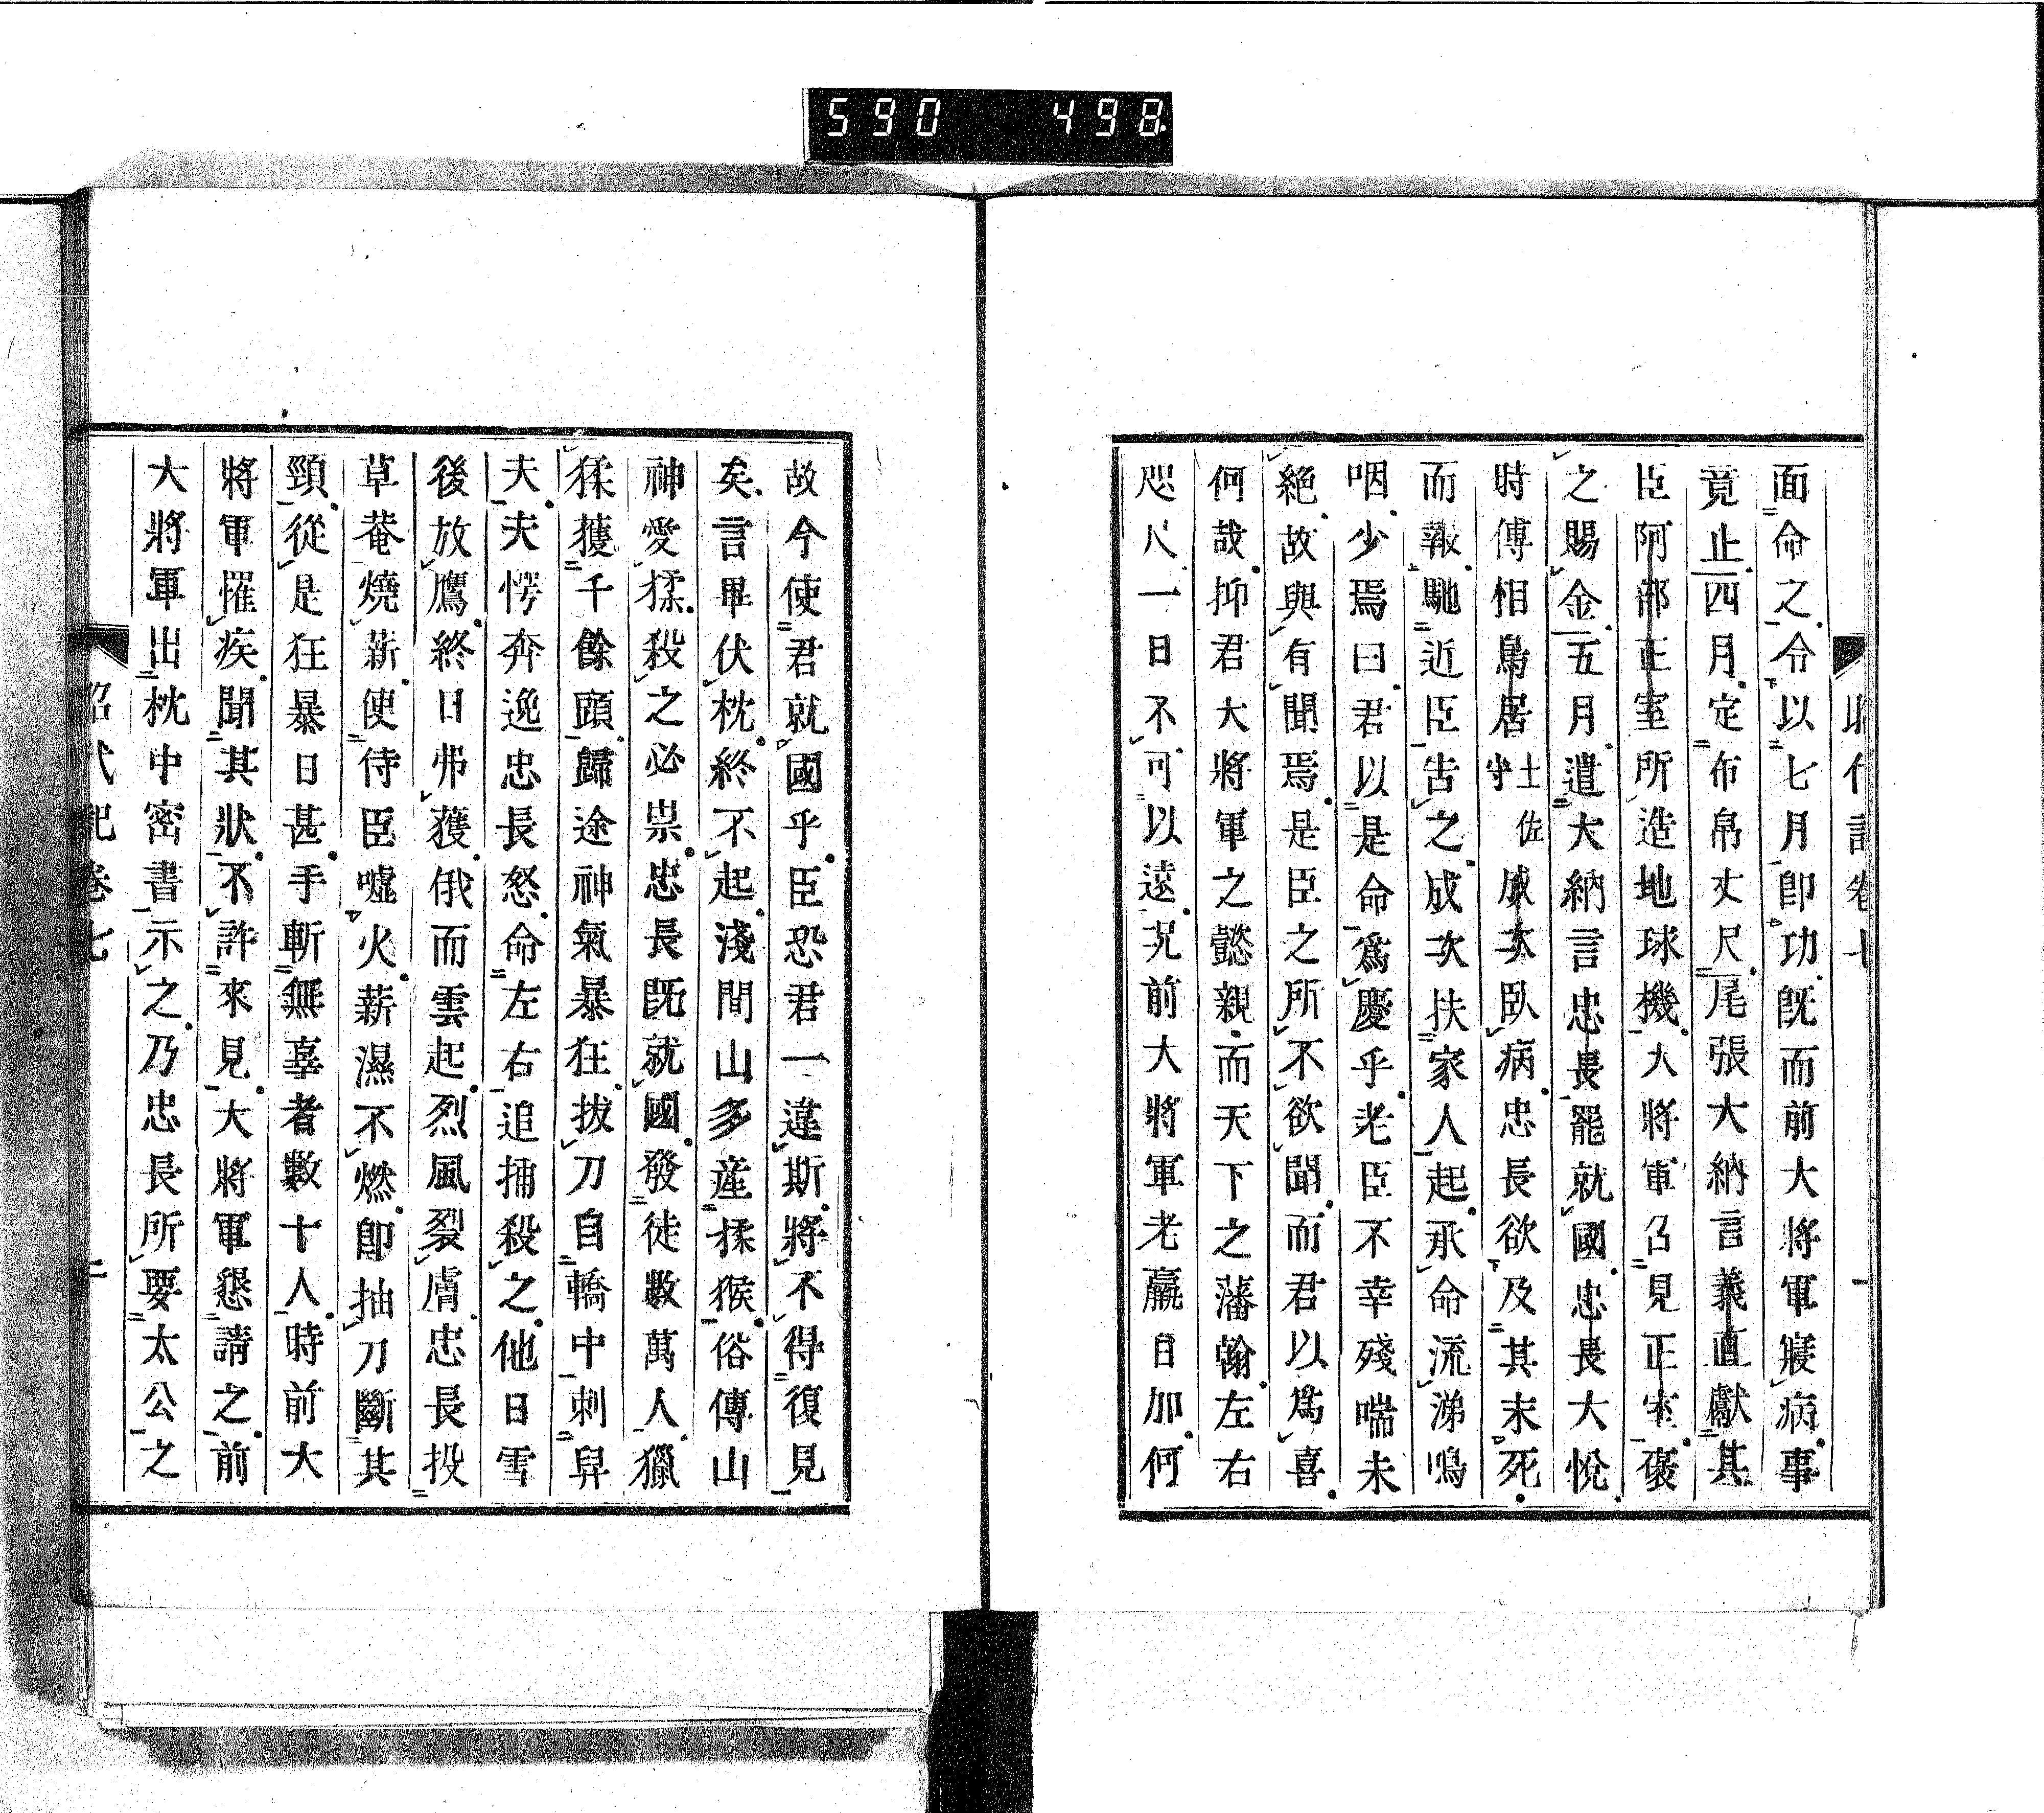 590 498
面命之令以七月卽功旣而前大將軍寢病事
竟止四月定布帛丈尺尾張大納言義直獻其
臣阿部正室所造地球機大將軍召見正室褒
之賜金五月遣大納言忠長罷就國忠長大悅
時傅相鳥居土佐守成次臥病忠長欲及其未死
而報馳近臣告之成次扶家人起承命流涕嗚
咽少焉曰君以是命爲慶乎老臣不幸殘喘未
絕故與有聞焉是臣之所不欲聞而君以爲喜
何哉抑君大將軍之懿親而天下之藩翰左右
咫尺一日不可以遠況前大將軍老羸日加何
故今使君就國乎臣恐君一違斯將不得復見
矣言畢伏枕終不起淺間山多產猱猴俗傳山
神愛猱殺之必祟忠長旣就國發徒數萬人獵
猱獲千餘頭歸途神氣暴狂拔刀自轎中刺舁
夫夫愕奔逸忠長怒命左右追捕殺之他日雪
後放鷹終日弗獲俄而雲起烈風裂膚忠長投
草菴燒薪使侍臣噓火薪濕不燃卽抽刀斷其
頸從是狂暴日甚手斬無辜者數十人時前大
將軍罹疾聞其狀不許來見大將軍懇請之前
大將軍出枕中密書示之乃忠長所要太公之
昭代記卷七 二